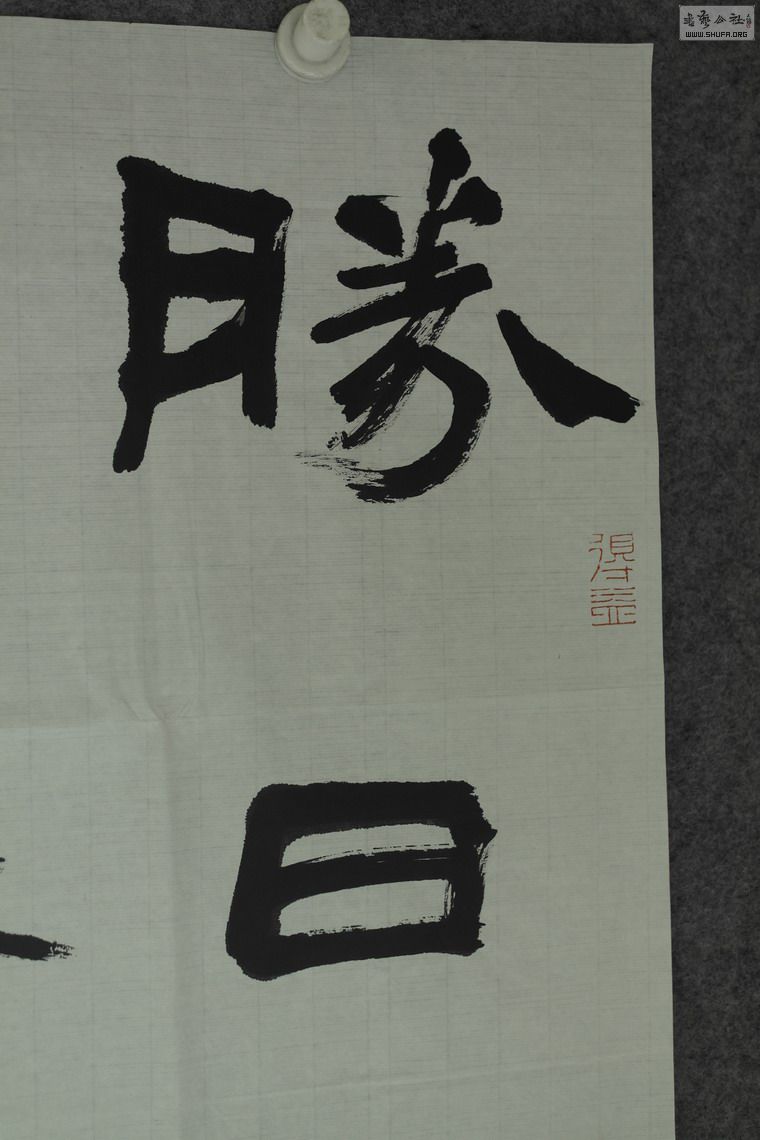 勝日
得益
書藝公社
WWW.SHUFA.ORG